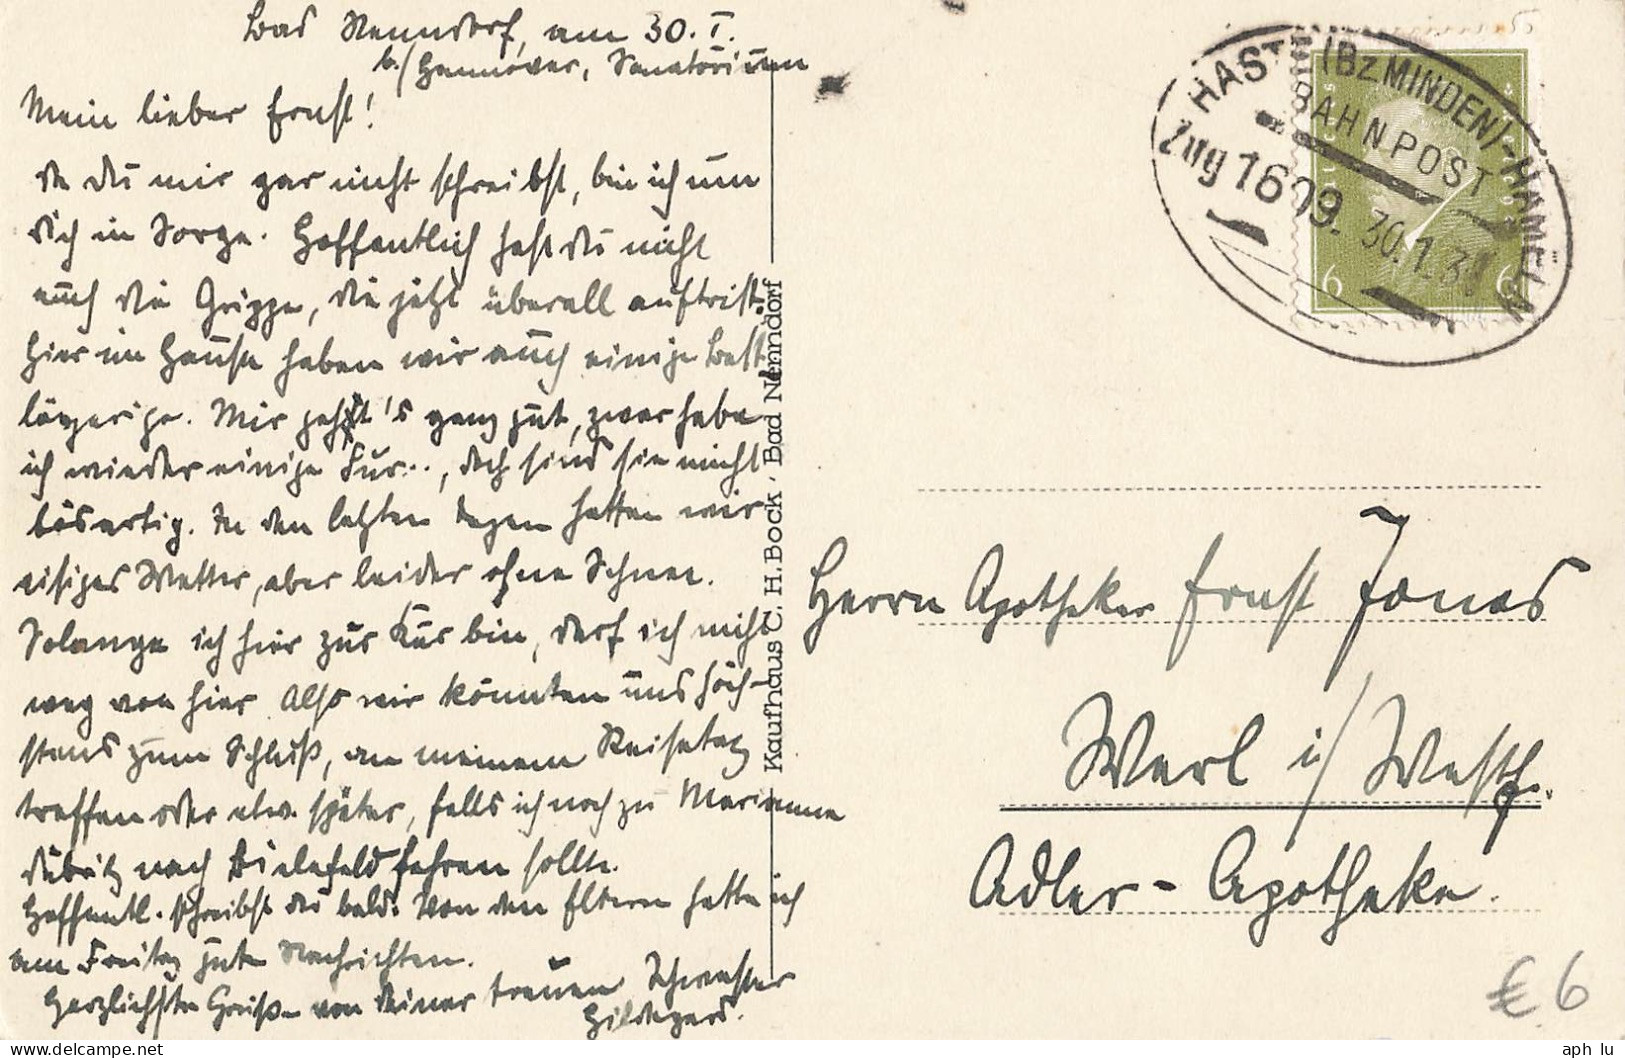 Bad Nenndorf, am 30. I.
b./Hannover, Sanatorium
Mein lieber Ernst!
da du mir gar nicht schreibst, bin ich um
dich in Sorge. Hoffentlich hast du nicht
auch die Grippe, die jetzt überall auftritt.
Hier im Hause haben wir auch einige Bett-
lägerige. Mir geht's ganz gut, zwar habe
ich wieder einige Fur.., doch sind sie nicht
bösartig. In den letzten Tagen hatten wir
eisiges Wetter, aber leider ohne Schnee.
Solange ich hier zur Kur bin, darf ich nicht
weg von hier. Also wir könnten uns höch-
stens zum Schluß, an meinem Reisetag
treffen oder etw. später, falls ich noch zu Marianne
Dübritz nach Bielefeld fahren sollte.
Hoffentl. schreibst du bald. Von den Eltern hatte ich
am Freitag gute Nachrichten.
Herzlichste Grüße von deiner treuen Schwester
Hildegard.
Kaufhaus C. H. Bock · Bad Nenndorf
HASTE (Bz. MINDEN)-HAMELN
BAHNPOST
Zug 1609.
30.1.3
6 6
Herrn Apotheker Ernst Jonas
Werl i/Westf.
Adler-Apotheke.
€ 6
aph_lu